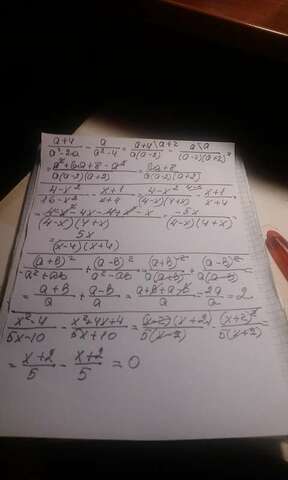 a+4/a²-2a - a/a²-4 = a+4\a+2/a(a-2) - a\a/(a-2)(a+2) =
= a²+6a+8-a²/a(a-2)(a+2) = 6a+8/a(a-2)(a+2)
4-x²/16-x² - x+1/x+4 = 4-x²/(4-x)(4+x) - x+1/x+4 =
(4-x)(4+x) = -5x/(4-x)(4+x) =
= 5x/(x-4)(x+4)
(a+b)²/a²+ab + (a-b)²/a²-ab = (a+b)²/a(a+b) + (a-b)²/a(a-b) =
= a+b/a + a-b/a = a+b+a-b/a = 2a/a = 2
x²-4/5x-10 - x²+4x+4/5x+10 = (x-2)(x+2)/5(x-2) - (x+2)²/5(x+2) =
= x+2/5 - x+2/5 = 0